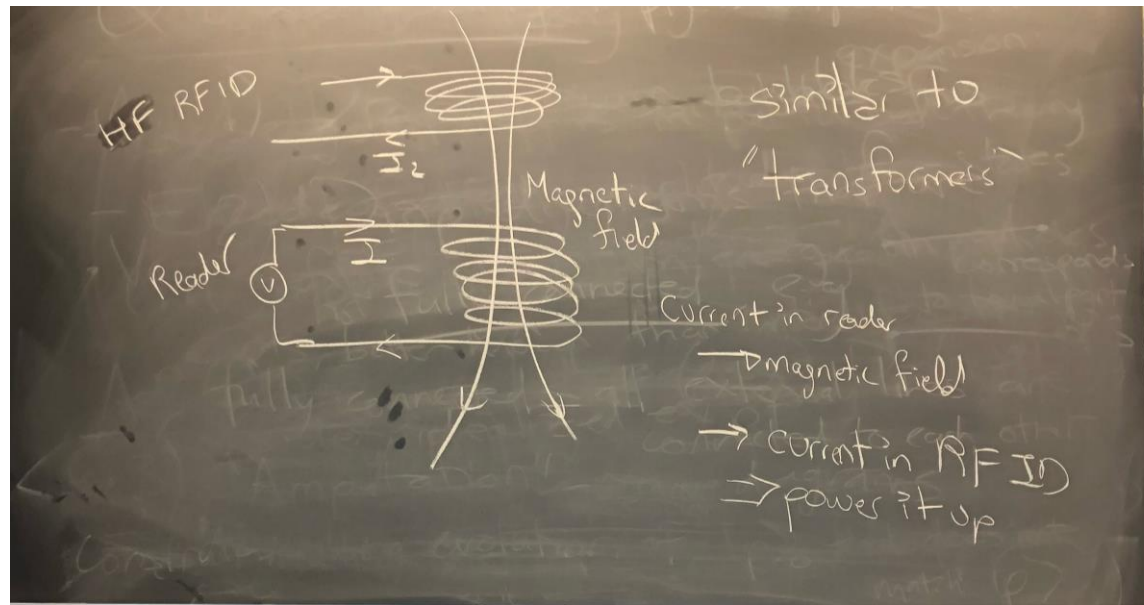 HF RFID
I₂
Magnetic
field
Reader
V
I
similar to
"transformers"
Current in reader
→ magnetic field
→ current in RFID
⇒ power it up